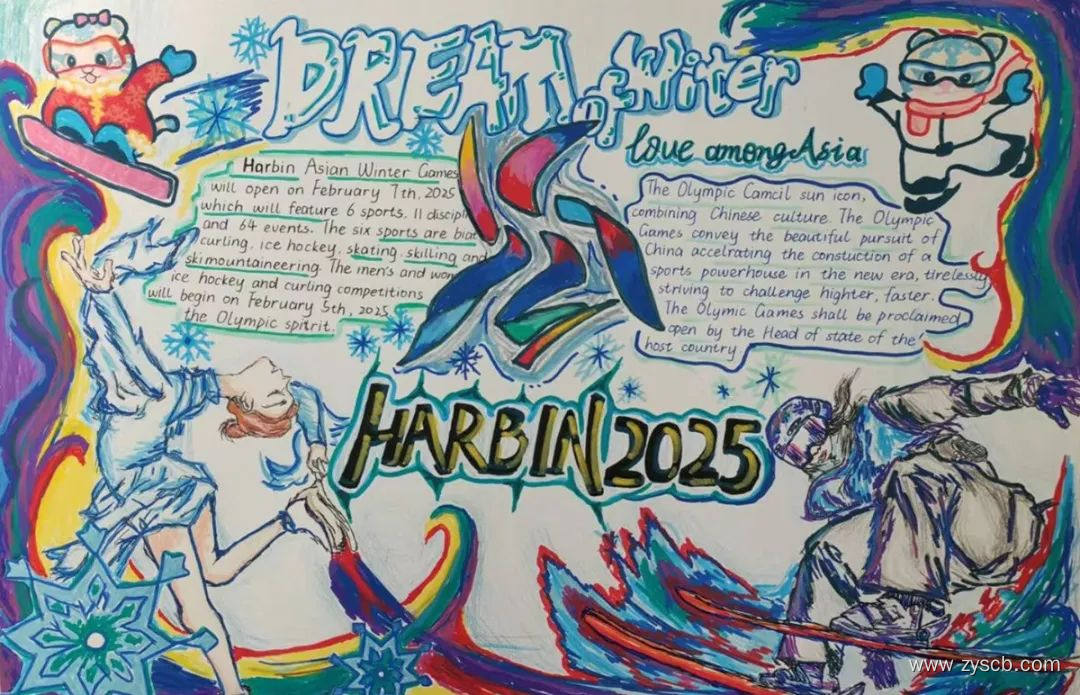 DREAM of Witer
love among Asia
Harbin Asian Winter Games
will open on February 7th, 2025
which will feature 6 sports. 11 discipl
and 64 events. The six sports are biat
curling, ice hockey, skating, skilling and
skimountaineering. The men's and wom
ice hockey and curling competitions
will begin on February 5th, 2025
the Olympic spitrit.
The Olympic Camcil sun icon,
combining Chinese culture. The Olympic
Games convey the beautiful pursuit of
China accelrating the constuction of a
sports powerhouse in the new era, tirelessly
striving to challenge highter, faster.
The Olymic Games shall be proclaimed
open by the Head of state of the
host country
HARBIN 2025
www.zyscb.com